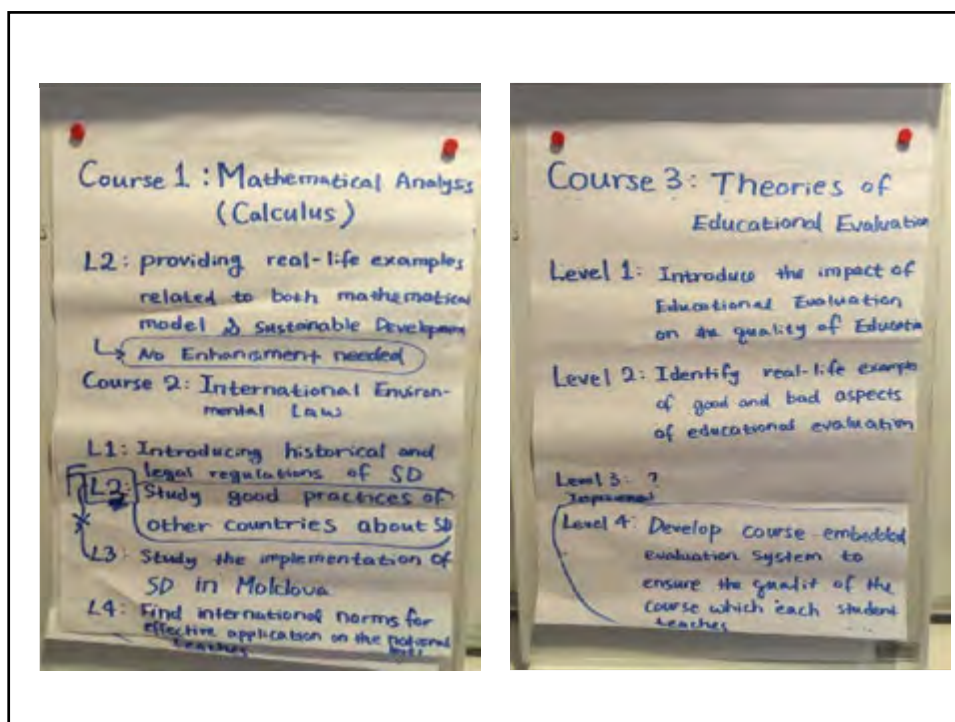 Course 1 : Mathematical Analysis
(Calculus)
L2: providing real-life examples
related to both mathematical
model & Sustainable Developmen
↳ No Enhansment needed
Course 2: International Environ-
mental Law
L1: Introducing historical and
legal regulations of SD
L2: Study good practices of
other countries about SD
L3: Study the implementation of
SD in Moldova
L4: Find international norms for
effective application on the national
teaches
Course 3: Theories of
Educational Evaluation
Level 1: Introduce the impact of
Educational Evaluation
on the quality of Educatio
Level 2: Identify real-life example
of good and bad aspects
of educational evaluation
Level 3: ?
Level 4: Develop course embedded
evaluation system to
ensure the qualit of the
course which each student
teaches